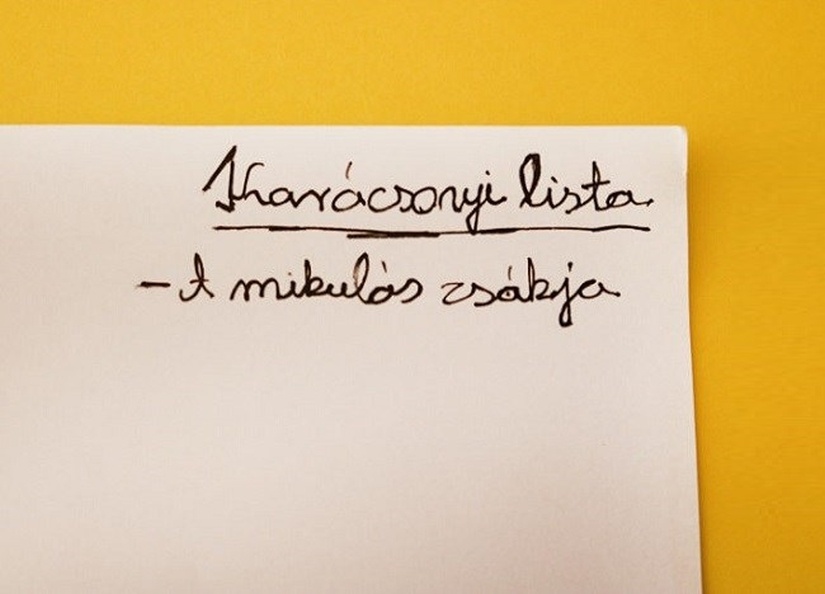 Karácsonyi lista
- A mikulás zsákja